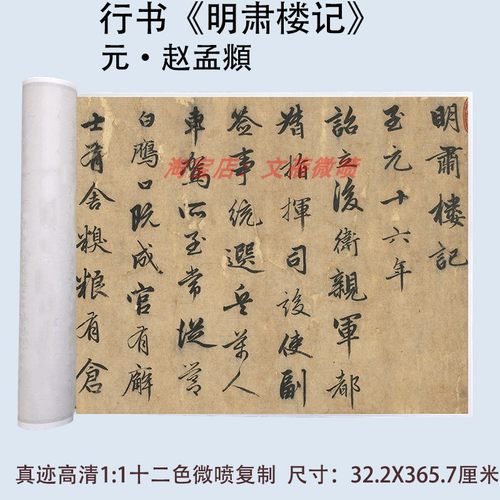 行书《明肃楼记》
元·赵孟頫
明肅樓記
至元十六年
詔立後衛親軍都
指揮司設使副
簽事統選兵萬人
車駕所至常從營
白鴈口既成官有廨
士有舍糗粮有倉
淘宝店：文 微喷
真迹高清1:1十二色微喷复制 尺寸：32.2X365.7厘米